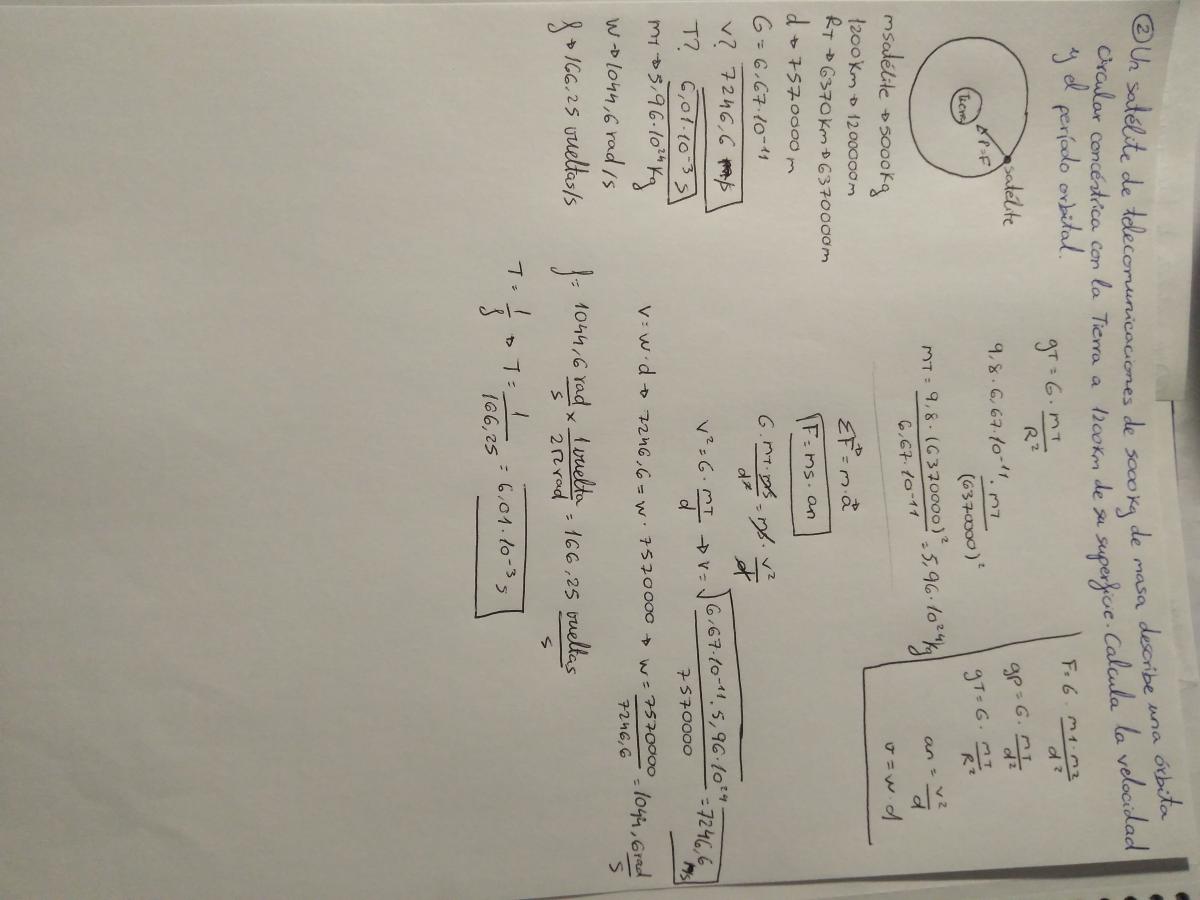 ② Un satélite de telecomunicaciones de 5000Kg de masa describe una órbita
circular concéntrica con la Tierra a 1200Km de su superficie. Calcula la velocidad
y el período orbital.
satélite
P=F
Tierra
msatélite → 5000Kg
1200Km → 1200000m
RT → 6370Km → 6370000m
d → 7570000m
G = 6,67·10⁻¹¹
v? 7246,6 m/s
T? 6,01·10⁻³ s
mT → 5,96·10²⁴ Kg
W → 1044,6 rad/s
f → 166,25 vueltas/s
gT = G · mT/R²
9,8 · 6,67·10⁻¹¹ · mT/(6370000)²
mT = 9,8 · (6370000)²/6,67·10⁻¹¹ = 5,96·10²⁴ Kg
F = G · m1·m2/d²
gP = G · mT/d²
gT = G · mT/R²
an = v²/d
v = w·d
ΣF = m·a
F = ms · an
G · mT·ms/d² = ms · v²/d
v² = G · mT/d → v = √6,67·10⁻¹¹ · 5,96·10²⁴/7570000 = 7246,6 m/s
v = w·d → 7246,6 = w · 7570000 → w = 7570000/7246,6 = 1044,6 rad/s
f = 1044,6 rad/s × 1 vuelta/2π rad = 166,25 vueltas/s
T = 1/f → T = 1/166,25 = 6,01·10⁻³ s